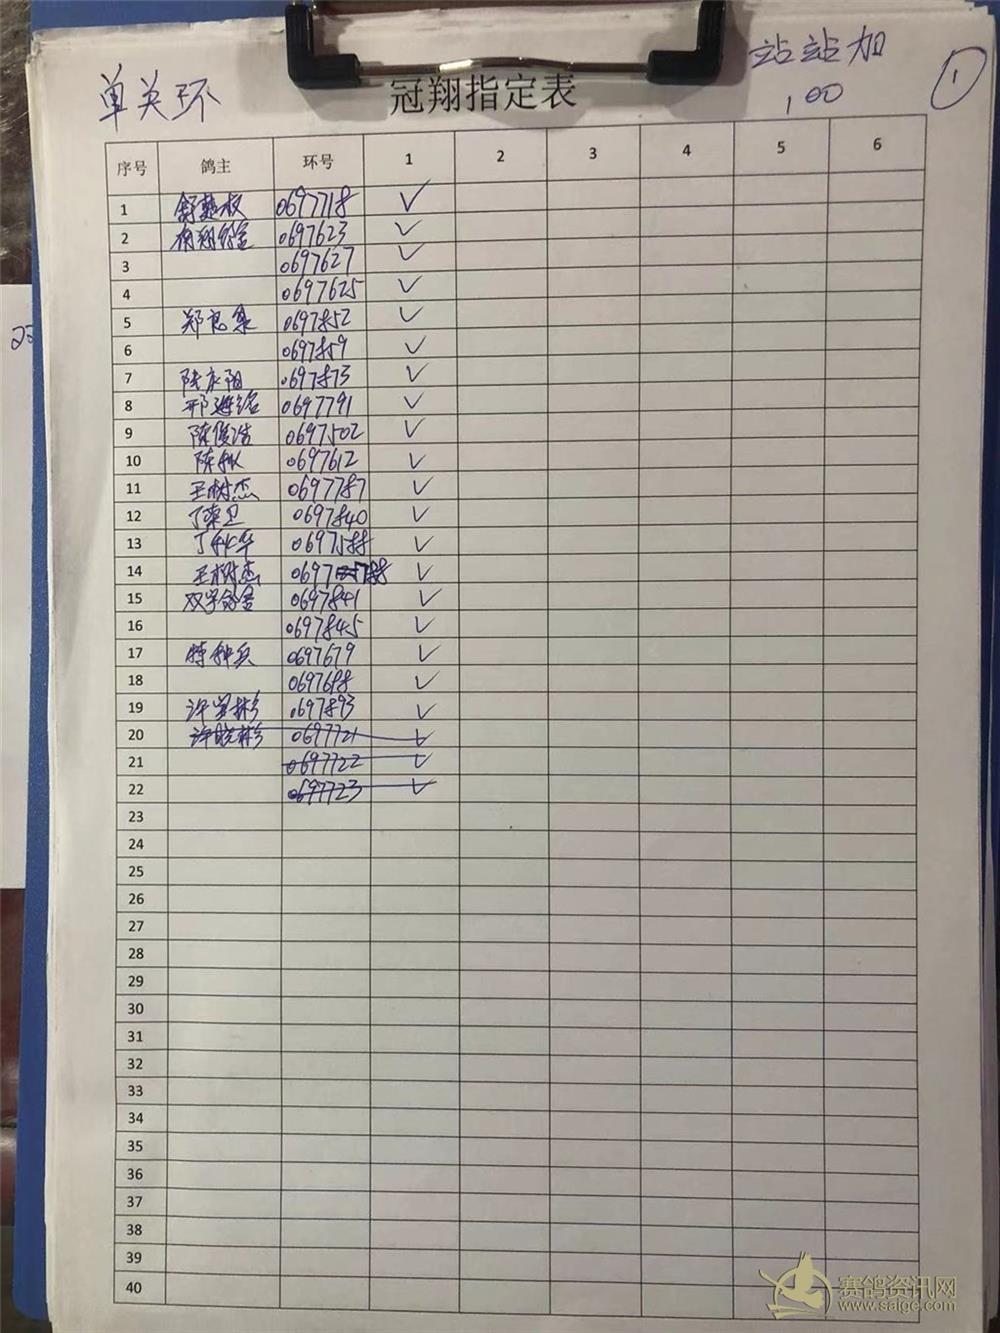 站站加
100
①
单关环
冠翔指定表
序号 鸽主 环号 1 2 3 4 5 6
1 0697718 ✓
2 0697623 ✓
3 0697627 ✓
4 0697625 ✓
5 郑思集 0697852 ✓
6 0697859 ✓
7 陆永阳 697873 ✓
8 0697791 ✓
9 陈俊浩 0697502 ✓
10 陈 0697612 ✓
11 王树杰 0697787 ✓
12 丁荣卫 0697840 ✓
13 丁 华 0697588 ✓
14 王树杰 0697788 ✓
15 双宇鸽舍 0697841 ✓
16 0697845 ✓
17 特种兵 0697679 ✓
18 0697688 ✓
19 许 彬 697893 ✓
20 许晓彬 0697721 ✓
21 0697722 ✓
22 0697723 ✓
23
24
25
26
27
28
29
30
31
32
33
34
35
36
37
38
39
40
赛鸽资讯网
www.saige.com